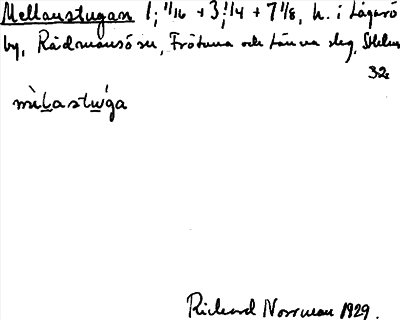 Mellanstugan 1; 1/16 + 3; 1/4 + 7 1/8, h. i Lågarö
by, Rådmansö sn, Frötuna och Länna slg, Sthlms
32
mèlastuǵa
Rickard Norrman 1929.